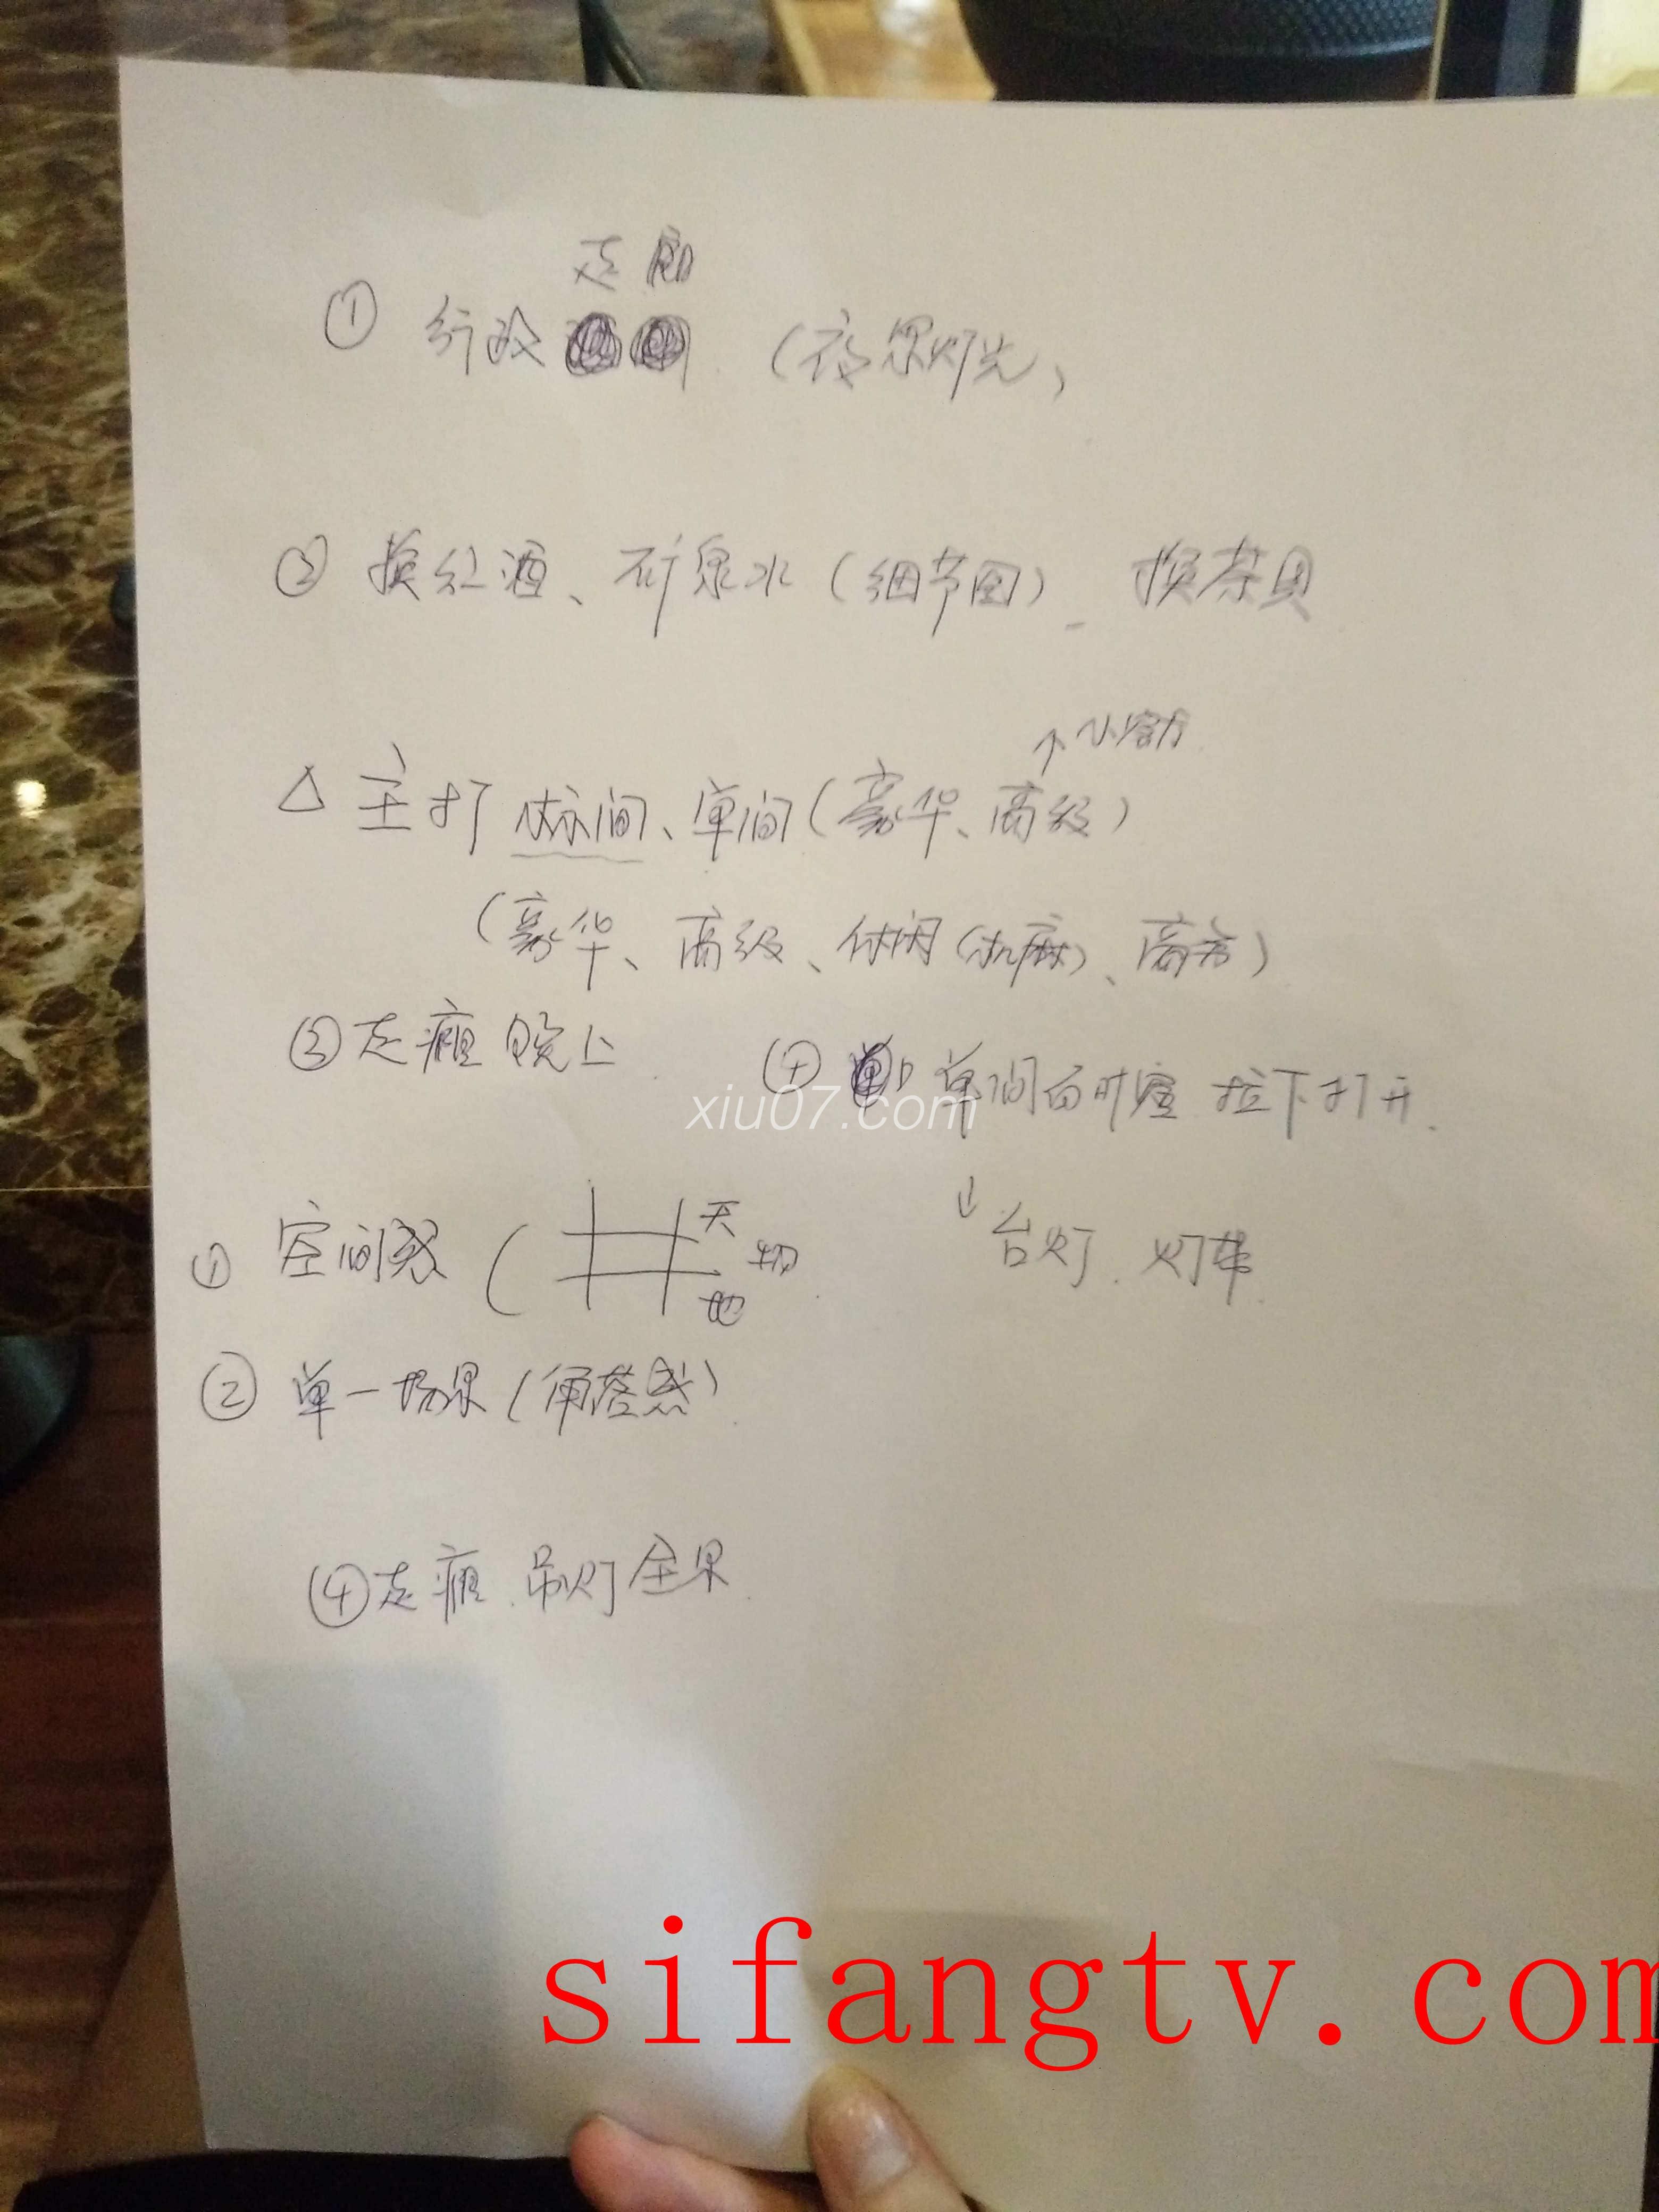 走廊
① 行政 (夜景灯光)
② 换红酒、矿泉水(细节图) 换茶具
↑小客厅
△ 主打 标间、单间(豪华、高级)
(豪华、高级、休闲(机麻)、商务)
③走廊 晚上
④ 单间 拉下打开.
xiu07.com
↓台灯. 灯带.
① 空间感 ( 天 物 地
② 单一场景(角落感)
④走廊.吊灯全景.
sifangtv.com